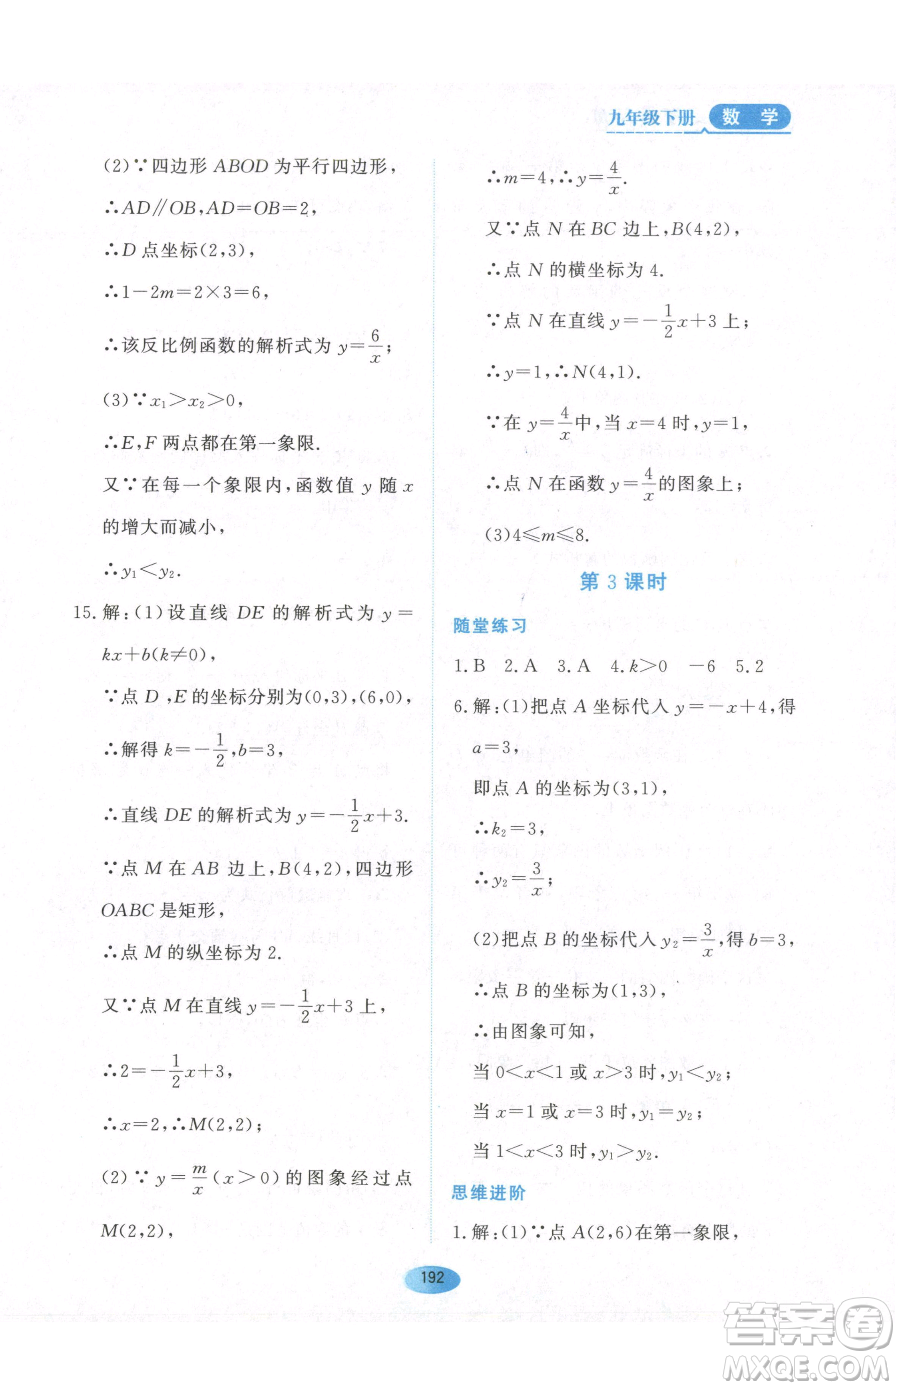 九年级下册 数 学
(2)∵四边形 ABOD 为平行四边形,
∴AD∥OB,AD=OB=2,
∴D 点坐标(2,3),
∴1-2m=2×3=6,
∴该反比例函数的解析式为 y=6/x;
(3)∵x₁>x₂>0,
∴E,F 两点都在第一象限.
又∵在每一个象限内,函数值 y 随 x
的增大而减小,
∴y₁<y₂.
15.解:(1)设直线 DE 的解析式为 y=
kx+b(k≠0),
∵点 D ,E 的坐标分别为(0,3),(6,0),
∴解得 k=-1/2,b=3,
∴直线 DE 的解析式为 y=-1/2x+3.
∵点 M 在 AB 边上,B(4,2),四边形
OABC 是矩形,
∴点 M 的纵坐标为 2.
又∵点 M 在直线 y=-1/2x+3 上,
∴2=-1/2x+3,
∴x=2,∴M(2,2);
(2)∵y=m/x(x>0)的图象经过点
M(2,2),
∴m=4,∴y=4/x.
又∵点 N 在 BC 边上,B(4,2),
∴点 N 的横坐标为 4.
∵点 N 在直线 y=-1/2x+3 上;
∴y=1,∴N(4,1).
∵在 y=4/x中,当 x=4 时,y=1,
∴点 N 在函数 y=4/x的图象上;
(3)4≤m≤8.
第 3 课时
随堂练习
1.B 2.A 3.A 4.k>0 -6 5.2
6.解:(1)把点 A 坐标代入 y=-x+4,得
a=3,
即点 A 的坐标为(3,1),
∴k₂=3,
∴y₂=3/x;
(2)把点 B 的坐标代入 y₂=3/x,得 b=3,
∴点 B 的坐标为(1,3),
∴由图象可知,
当 0<x<1 或 x>3 时,y₁<y₂;
当 x=1 或 x=3 时,y₁=y₂;
当 1<x<3 时,y₁>y₂.
思维进阶
1.解:(1)∵点 A(2,6)在第一象限,
192
答案卷
MXQE.COM